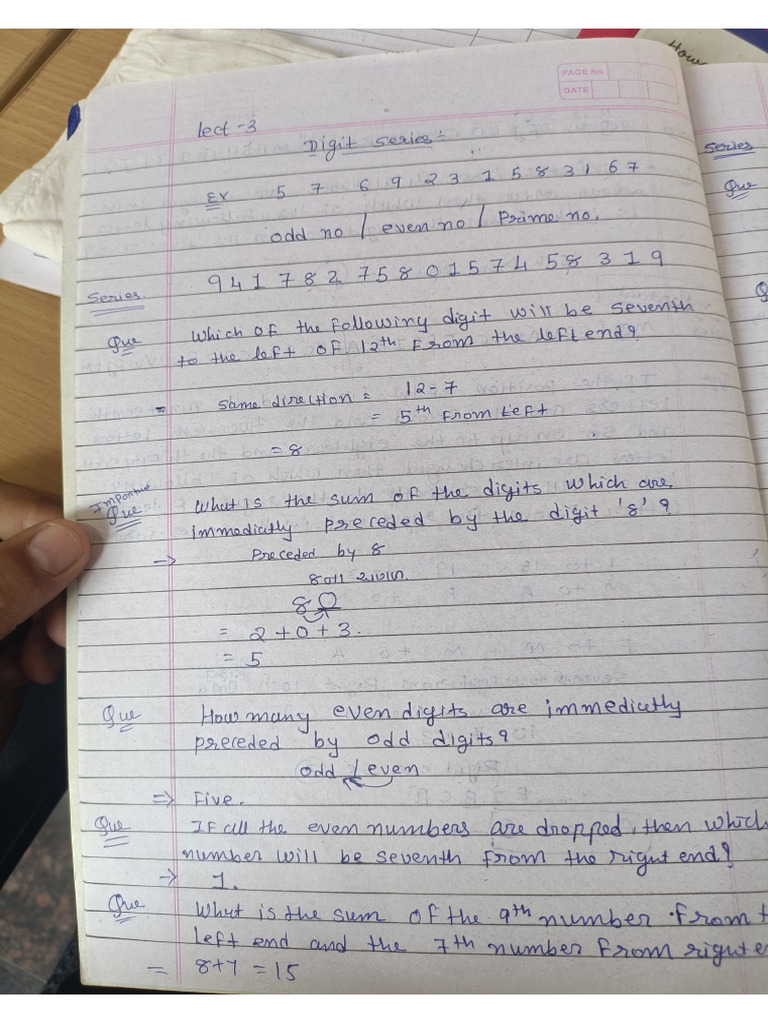 PAGE No.
DATE
How
Lect-3
Digit Series:-
Ex 5 7 6 9 2 3 1 5 8 3 1 6 7
odd no / even no / Prime no.
Series. 9 4 1 7 8 2 7 5 8 0 1 5 7 4 5 8 3 1 9
Que Which of the following digit will be seventh
to the left of 12th from the left end?
= Same direction = 12-7
= 5th from Left
= 8
Important
Que What is the sum of the digits which are
immedictly preceded by the digit '8'?
→ Preceded by 8
8
= 2+0+3.
= 5
Que How many even digits are immedictly
preceded by odd digits?
odd / even
⇒ Five.
Que If all the even numbers are dropped, then which
number will be seventh from the right end?
→ 1.
Que What is the sum of the 9th number from t
left end and the 7th number from right e
= 8+7 = 15
Series
Que
Q